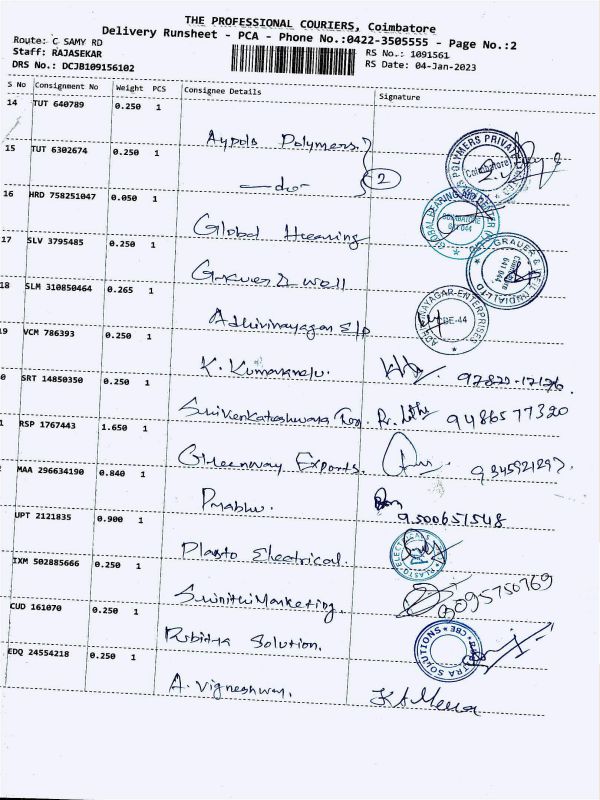 THE PROFESSIONAL COURIERS, Coimbatore
Delivery Runsheet - PCA - Phone No.:0422-3505555 - Page No.:2
Route: C SAMY RD
RS No.: 1091561
Staff: RAJASEKAR
RS Date: 04-Jan-2023
DRS No.: DCJB109156102
S No Consignment No Weight PCS Consignee Details Signature
14 TUT 640789 0.250 1
Aypols Polymers
15 TUT 6302674 0.250 1
-do- 2
16 HRD 758251047 0.050 1
Global Hearing
17 SLV 3795485 0.250 1
Grauer & Weil
18 SLM 310850464 0.265 1
Adhivinayagar E/p
9 VCM 786393 0.250 1
K. Kumaravelu.
0 SRT 14850350 0.250 1
9486577320
1 RSP 1767443 1.650 1
Greenway Exports.
MAA 296634190 0.840 1
Prabhu.
9500651548
UPT 2121835 0.900 1
Plasto Electrical.
IXM 502885666 0.250 1
Srinithi Marketing.
CUD 161070 0.250 1
Solution.
EDQ 24554218 0.250 1
A. Vigneshwar.
POLYMERS PRIVATE
Coimbatore
GLOBAL HEARING AID CENTRE
COIMBATORE
641 044
GRAUER & WEIL (INDIA) LTD
Coimbatore
641 044
ADHIVINAYAGAR ENTERPRISES
CBE-44
PLASTO ELECTRICALS
SOLUTIONS * CBE